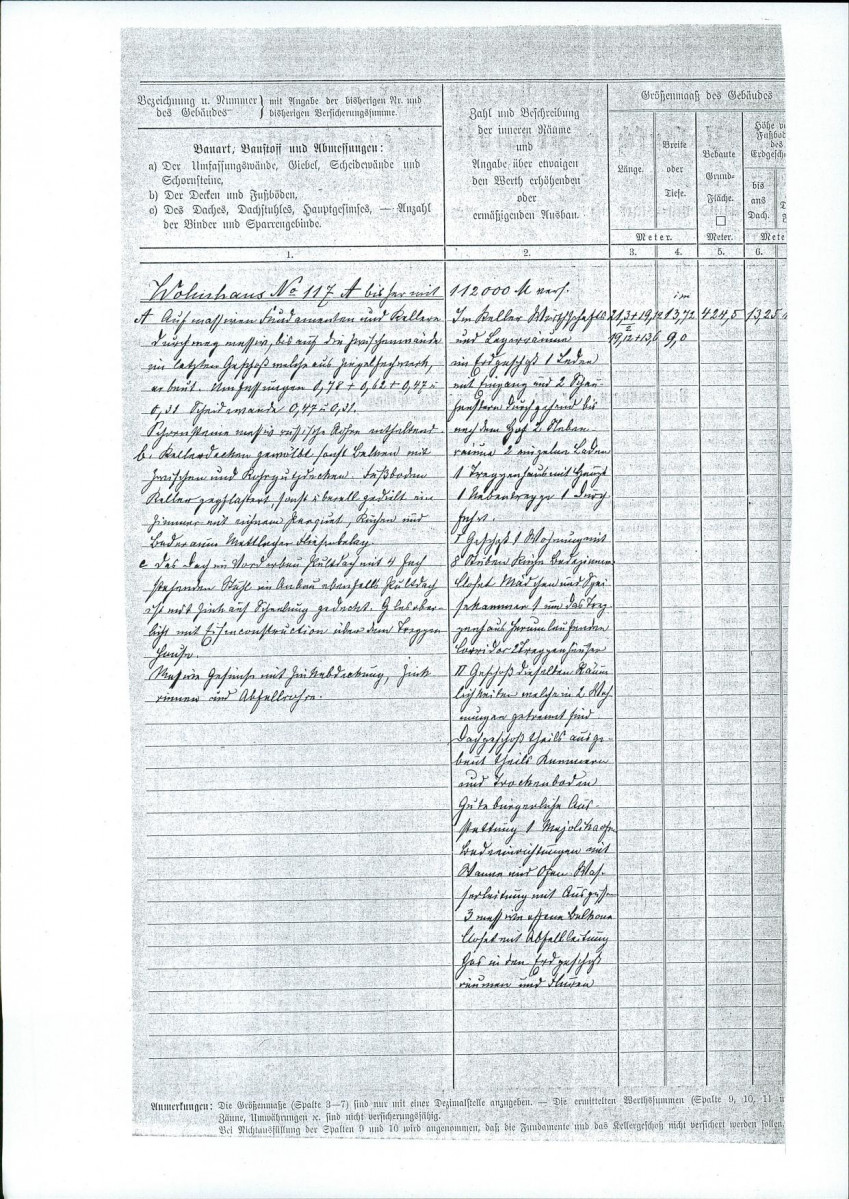 Bezeichnung u. Nummer des Gebäudes } mit Angabe der bisherigen Nr. und bisherigen Versicherungssumme.
Bauart, Baustoff und Abmessungen:
a) Der Umfassungswände, Giebel, Scheidewände und
Schornsteine,
b) Der Decken und Fußböden,
c) Des Daches, Dachstuhles, Hauptgesimses, — Anzahl
der Binder und Sparrengebinde.
Zahl und Beschreibung
der inneren Räume
und
Angabe über etwaigen
den Werth erhöhenden
oder
ermäßigenden Ausbau.
Größenmaaß des Gebäudes
Länge.
Breite
oder
Tiefe.
Bebaute
Grund-
Fläche.
□
Höhe
Fußbod
des
Erdgesch
bis
ans
Dach.
Meter.
Meter.
Mete
1.
2.
3.
4.
5.
6.
Wohnhaus No 117 A bisher mit
A Auf massiven Fundamenten und Kellern
durchweg massiv, bis auf die Zwischenwände
im letzten Geschoß welche aus Ziegelfachwerk,
erbaut. Umfassungen 0,78 + 0,62 + 0,47 u
0,31 Scheidewände 0,47 u 0,31.
Schornsteine massiv russische Rohre enthaltend
b. Kellerdecken gewölbt sonst Balken mit
Zwischen und Rohrputzdecken. Fußboden
Keller gepflastert, sonst überall gedielt ein
Zimmer mit eichnem Parquet, Küchen und
Baderaum Mettlacher Fliesenbelag.
c Das Dach im Vorderbau Pultdach mit 4 fach
stehenden Stuhl im Anbau ebenfalls Pultdach
ist mit Zink auf Schalung gedeckt. Glasober-
licht mit Eisenconstruction über dem Treppen
hause.
Massive Gesimse mit Zinkabdeckung, Zink-
rinnen und Abfallrohre.
112000 M vers.
Im Keller Wirthschafts
und Lagerräume
im Erdgeschoß 1 Laden
mit Eingang und 2 Schau-
fenstern durchgehend bis
nach dem Hof 2 Neben
räume 2 einzelne Läden
1 Treppenhaus mit Haupt
1 Nebentreppe 1 Durch
fahrt.
I Geschoß 1 Wohnung mit
8 Stuben Küche Badezimmer
Closet Mädchen und Spei
sekammer 1 um das Trep
penhaus herumlaufenden
Corridor 2 Treppenhäuser
II Geschoß dieselben Räum
lichkeiten welche in 2 Woh
nungen getrennt sind
Dachgeschoß theils ausge-
baut theils Kammern
und Trockenboden
Gute bürgerliche Aus
stattung 1 Majolikaofen
Badeeinrichtungen mit
Wanne und Ofen Was-
serleitung mit Ausguss
3 massive offene Balkone
Closet mit Abfallleitung
Gas in den Erdgeschoß
räumen und Fluren
21,3+19,12
2
19,12+13,6
im
13,72
9,0
424,5
13,25
Anmerkungen: Die Größenmaße (Spalte 3—7) sind nur mit einer Dezimalstelle anzugeben. — Die ermittelten Werthsummen (Spalte 9, 10, 11 u
Zäune, Umwährungen ꝛc. sind nicht versicherungsfähig.
Bei Nichtausfüllung der Spalten 9 und 10 wird angenommen, daß die Fundamente und das Kellergeschoß nicht versichert werden sollen.